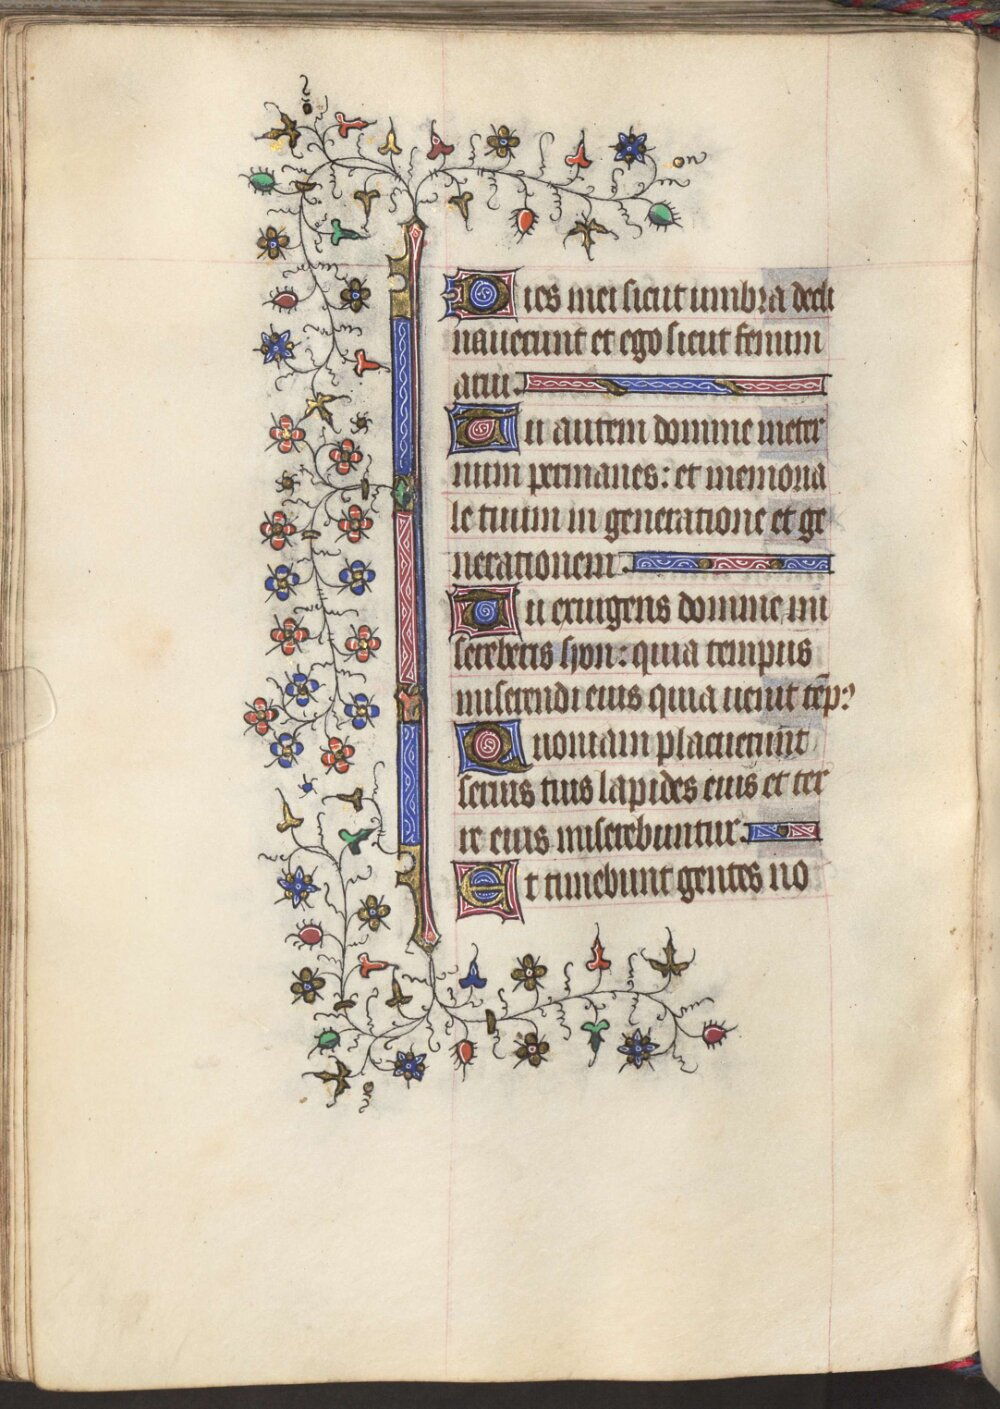 Dies mei sicut umbra decli
nauerunt et ego sicut fenum
arui.
Tu autem domine in eter
num permanes: et memoria
le tuum in generatione et ge
nerationem.
Tu exurgens domine mi
sereberis syon: quia tempus
miserendi eius quia uenit te̅p:
Quoniam placuerunt
seruis tuis lapides eius et ter
re eius miserebuntur.
Et timebunt gentes no